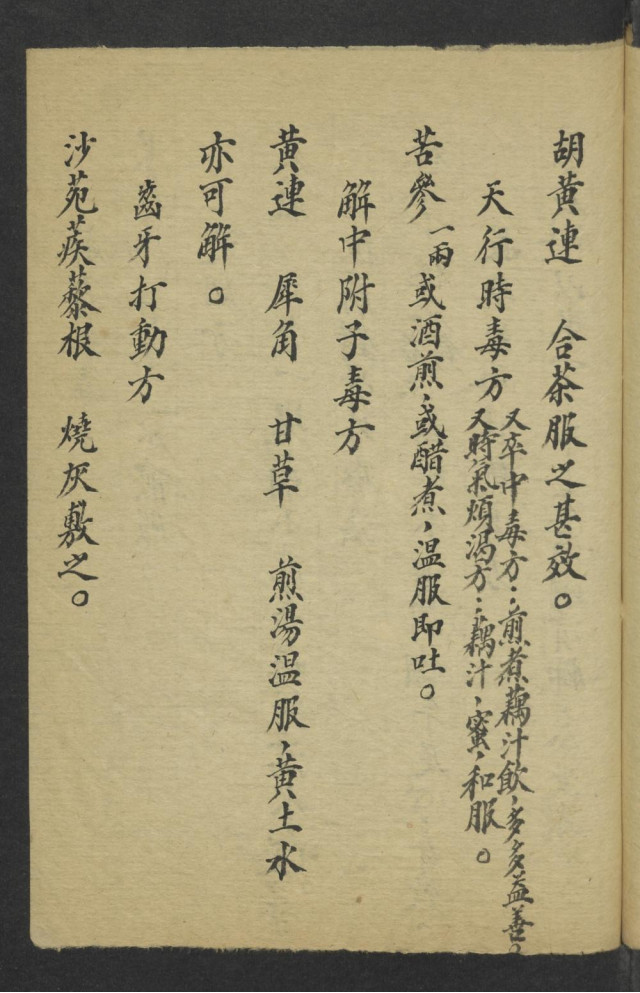 胡黃連　合茶服之甚效。
天行時毒方
又卒中毒方：煎煮藕汁飲，多多益善。
又時氣煩渴方：藕汁，蜜，和服。
苦參一兩或酒煎，或醋煮，温服即吐。
解中附子毒方
黃連　犀角　甘草　煎湯温服，黃土水
亦可解。
齒牙打動方
沙苑蒺藜根　燒灰敷之。